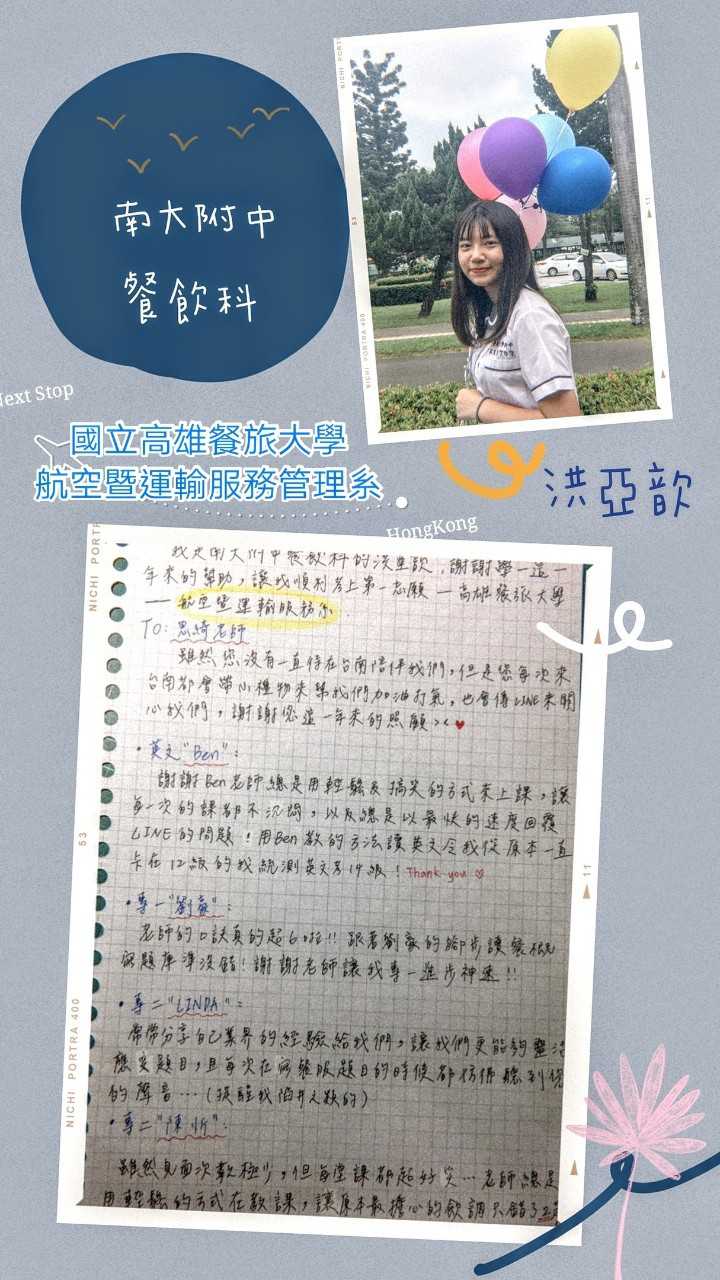 南大附中
餐飲科
NICHI PORTRA 400
53
11
Next Stop
國立高雄餐旅大學
航空暨運輸服務管理系
HongKong
洪亞歆
NICHI PORTRA 400
53
11
我是南大附中餐飲科的洪亞歆,謝謝學一這一
年來的幫助,讓我順利考上第一志願—高雄餐旅大學
——航空暨運輸服務系
TO:思綺老師
雖然您沒有一直待在台南陪伴我們,但是您每次來
台南都會帶小禮物來幫我們加油打氣,也會傳LINE來關
心我們,謝謝您這一年來的照顧><♥
•英文"Ben":
謝謝Ben老師總是用輕鬆及搞笑的方式來上課,讓
每一次的課都不沉悶,以及總是以最快的速度回覆
LINE的問題!用Ben教的方法讓英文令我從原本一直
卡在12級的我統測英文考14級!Thank you ♡
•專一"劉豪":
老師的口訣真的超6啦!!跟著劉豪的腳步讀餐概
寫題庫準沒錯!謝謝老師讓我專一進步神速!!
•專二"LINDA":
常常分享自己業界的經驗給我們,讓我們更能夠靈活
應變題目,且每次在寫餐服題目的時候都彷彿聽到您
的聲音…(提醒我
•專二"陳昕":
雖然見面次數極少,但每堂課都超好笑…老師總是
用輕鬆的方式在教課,讓原本最擔心的飲調只錯了